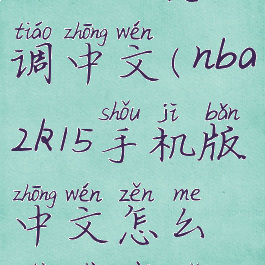 tiáo zhōng wén
调中文(nba
shǒu jī bǎn
2k15手机版
zhōng wén zěn me
中文怎么